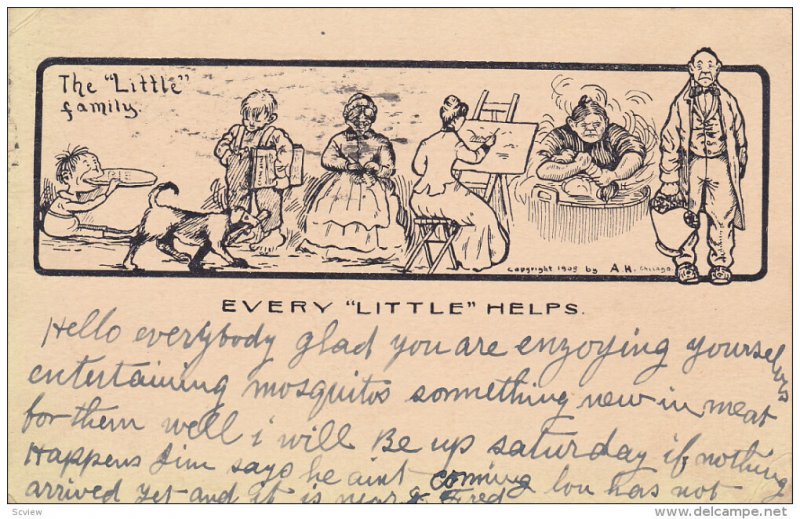 The "Little"
family.
copyright 1905 by A H. Chicago
EVERY "LITTLE" HELPS.
Hello everybody glad you are enzoying yourselves
entertaining mosquitos something new in meat
for them well i will Be up saturday if nothing
Happens Jim says he aint coming lou has not
arrived yet and it is near Fired
Scview
delcampe.net